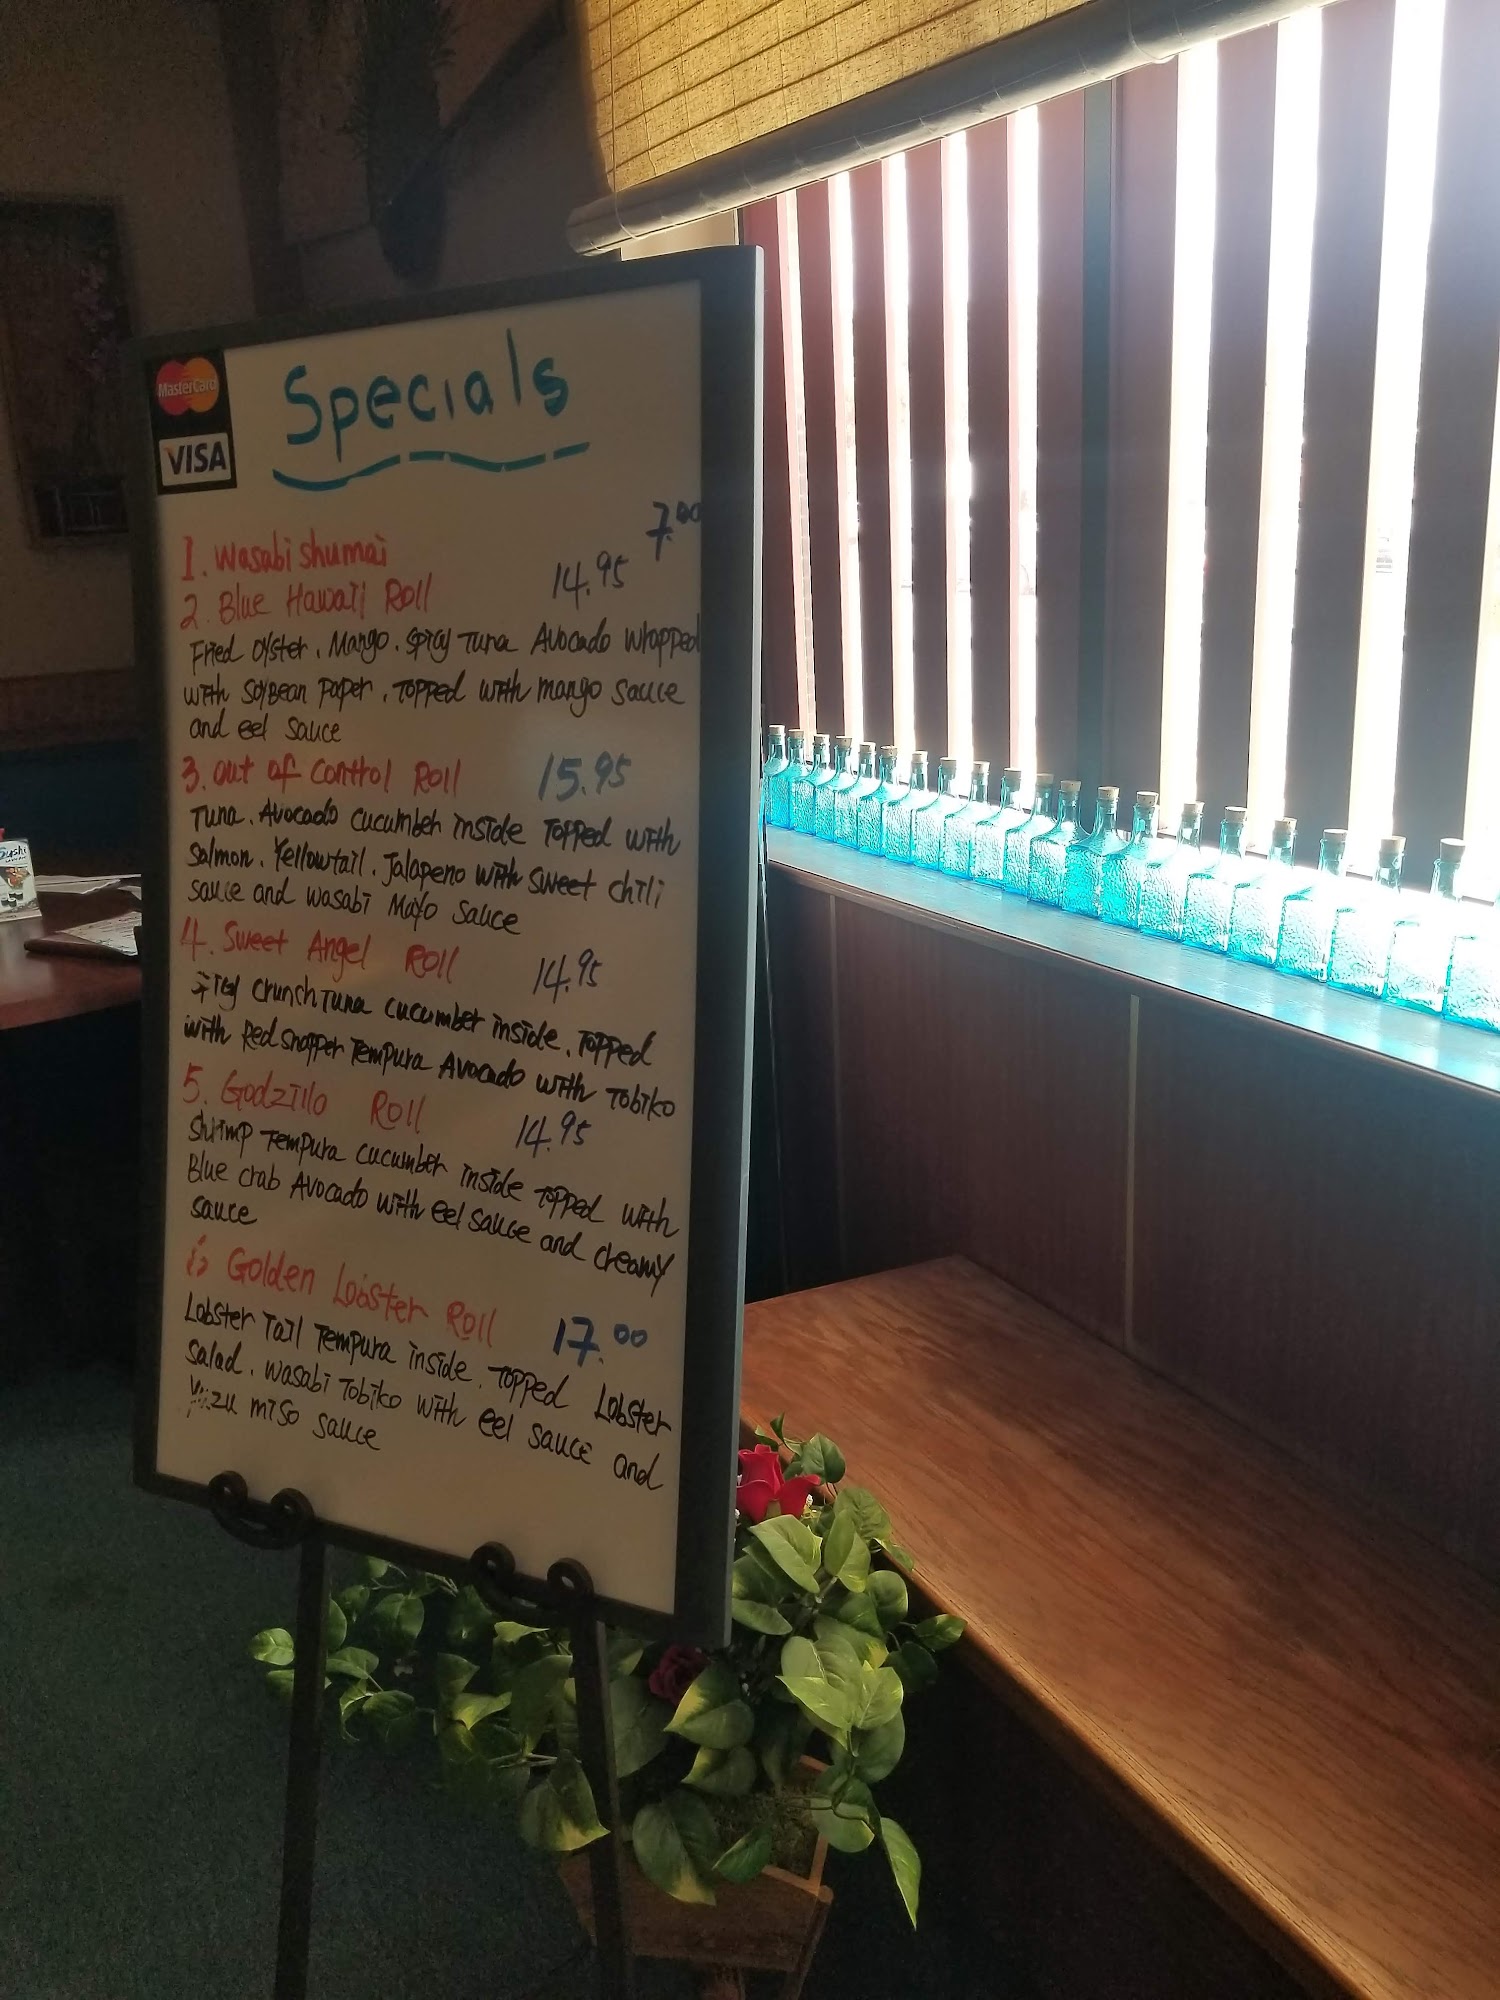 MasterCard
VISA
Specials
1. Wasabi Shumai 7.00
2. Blue Hawaii Roll 14.95
Fried oyster, Mango, Spicy Tuna Avocado wrapped
with soybean paper, Topped with mango sauce
and eel sauce
3. out of Control Roll 15.95
Tuna, Avocado cucumber inside Topped with
Salmon, Yellowtail, Jalapeno with sweet chili
sauce and wasabi Mayo sauce
4. Sweet Angel Roll 14.95
crunch Tuna cucumber inside, Topped
with Red snapper Tempura Avocado with Tobiko
5. Godzilla Roll 14.95
Shrimp Tempura cucumber inside Topped with
Blue crab Avocado with eel sauce and creamy
sauce
Golden Lobster Roll 17.00
Lobster Tail Tempura inside, Topped Lobster
Salad, wasabi Tobiko with eel sauce and
Yuzu miso sauce
Sushi